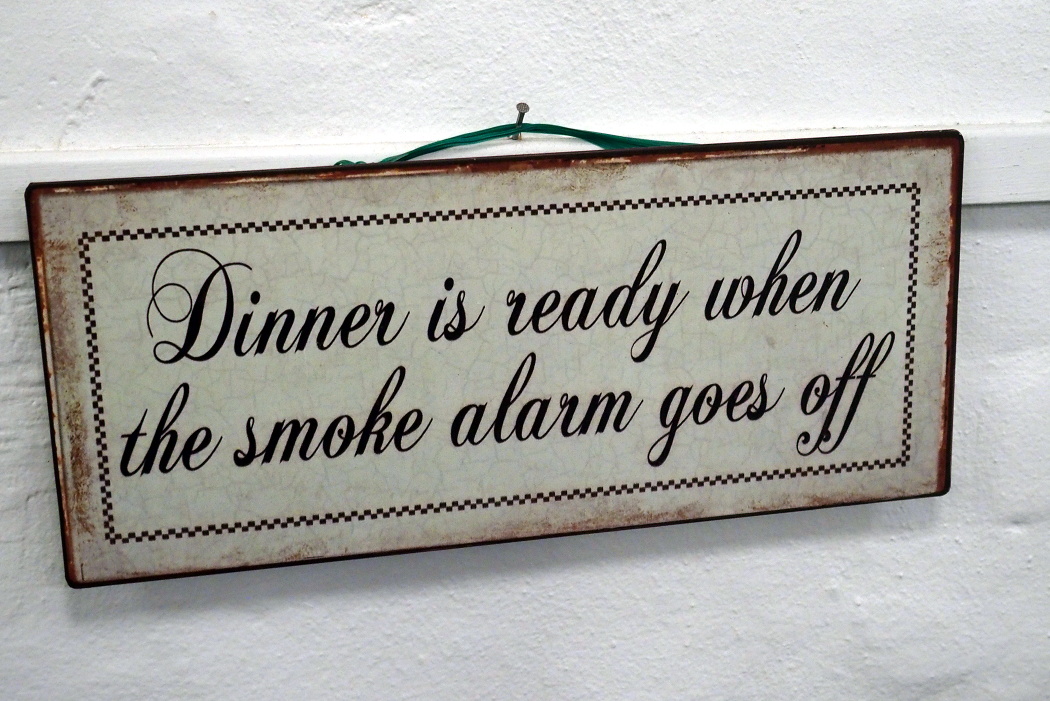 Dinner is ready when
the smoke alarm goes off